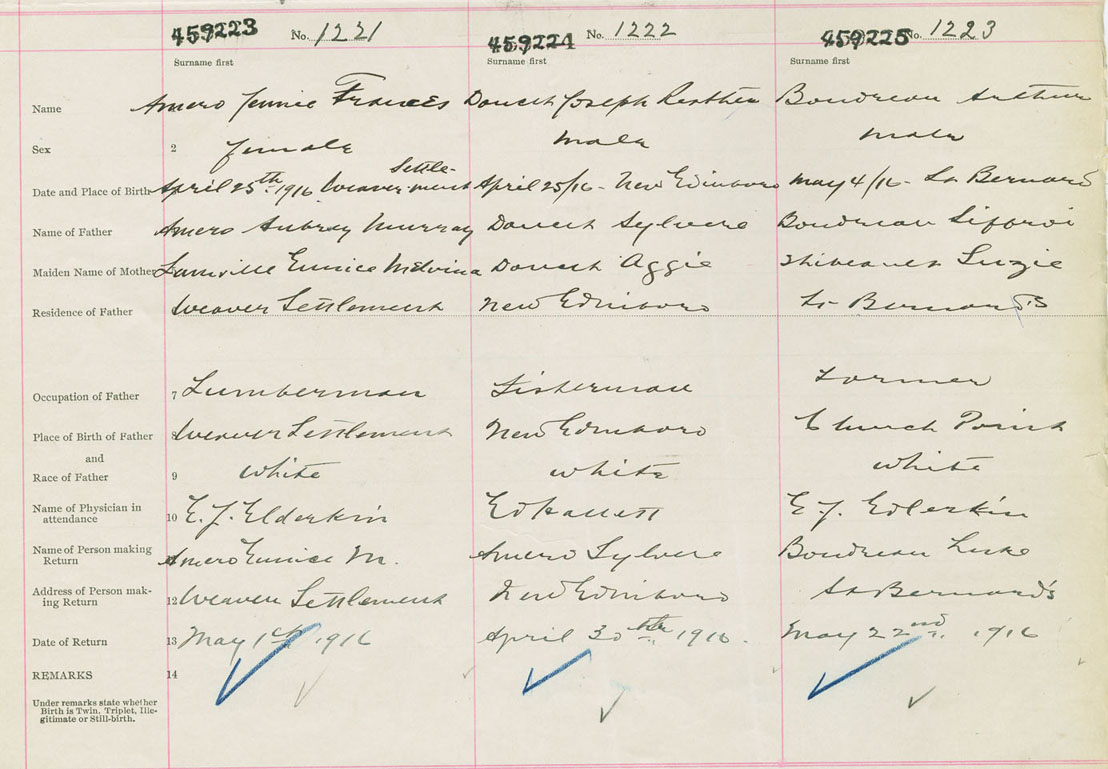 459223 No. 1221 459224 No. 1222 459225 No. 1223
Surname first Surname first Surname first
Name Amero Jennie Frances Doucet Joseph Boudreau Arthur
Sex 2 female male male
Settle-
Date and Place of Birth April 25th 1916 Weaver ment April 25/16 - New Edinboro May 4/16 - St Bernard
Name of Father Amero Aubrey Murray Doucet Sylvere Boudreau Siffroi
Maiden Name of Mother Eunice Melvina Doucet Aggie Thibeault Suzie
Residence of Father Weaver Settlement New Edinboro St Bernard's
Occupation of Father 7 Lumberman Fisherman Farmer
Place of Birth of Father 8 Weaver Settlement New Edinboro Church Point
and
Race of Father 9 white white white
Name of Physician in
attendance 10 E. J. Elderkin Ed Hallett E. J. Edlerkin
Name of Person making
Return Amero Eunice M. Amero Sylvere Boudreau Luke
Address of Person mak-
ing Return 12 Weaver Settlement New Edinboro St Bernard's
Date of Return 13 May 1st 1916 April 30th 1916. May 22nd. 1916
REMARKS 14
Under remarks state whether
Birth is Twin, Triplet, Ille-
gitimate or Still-birth.